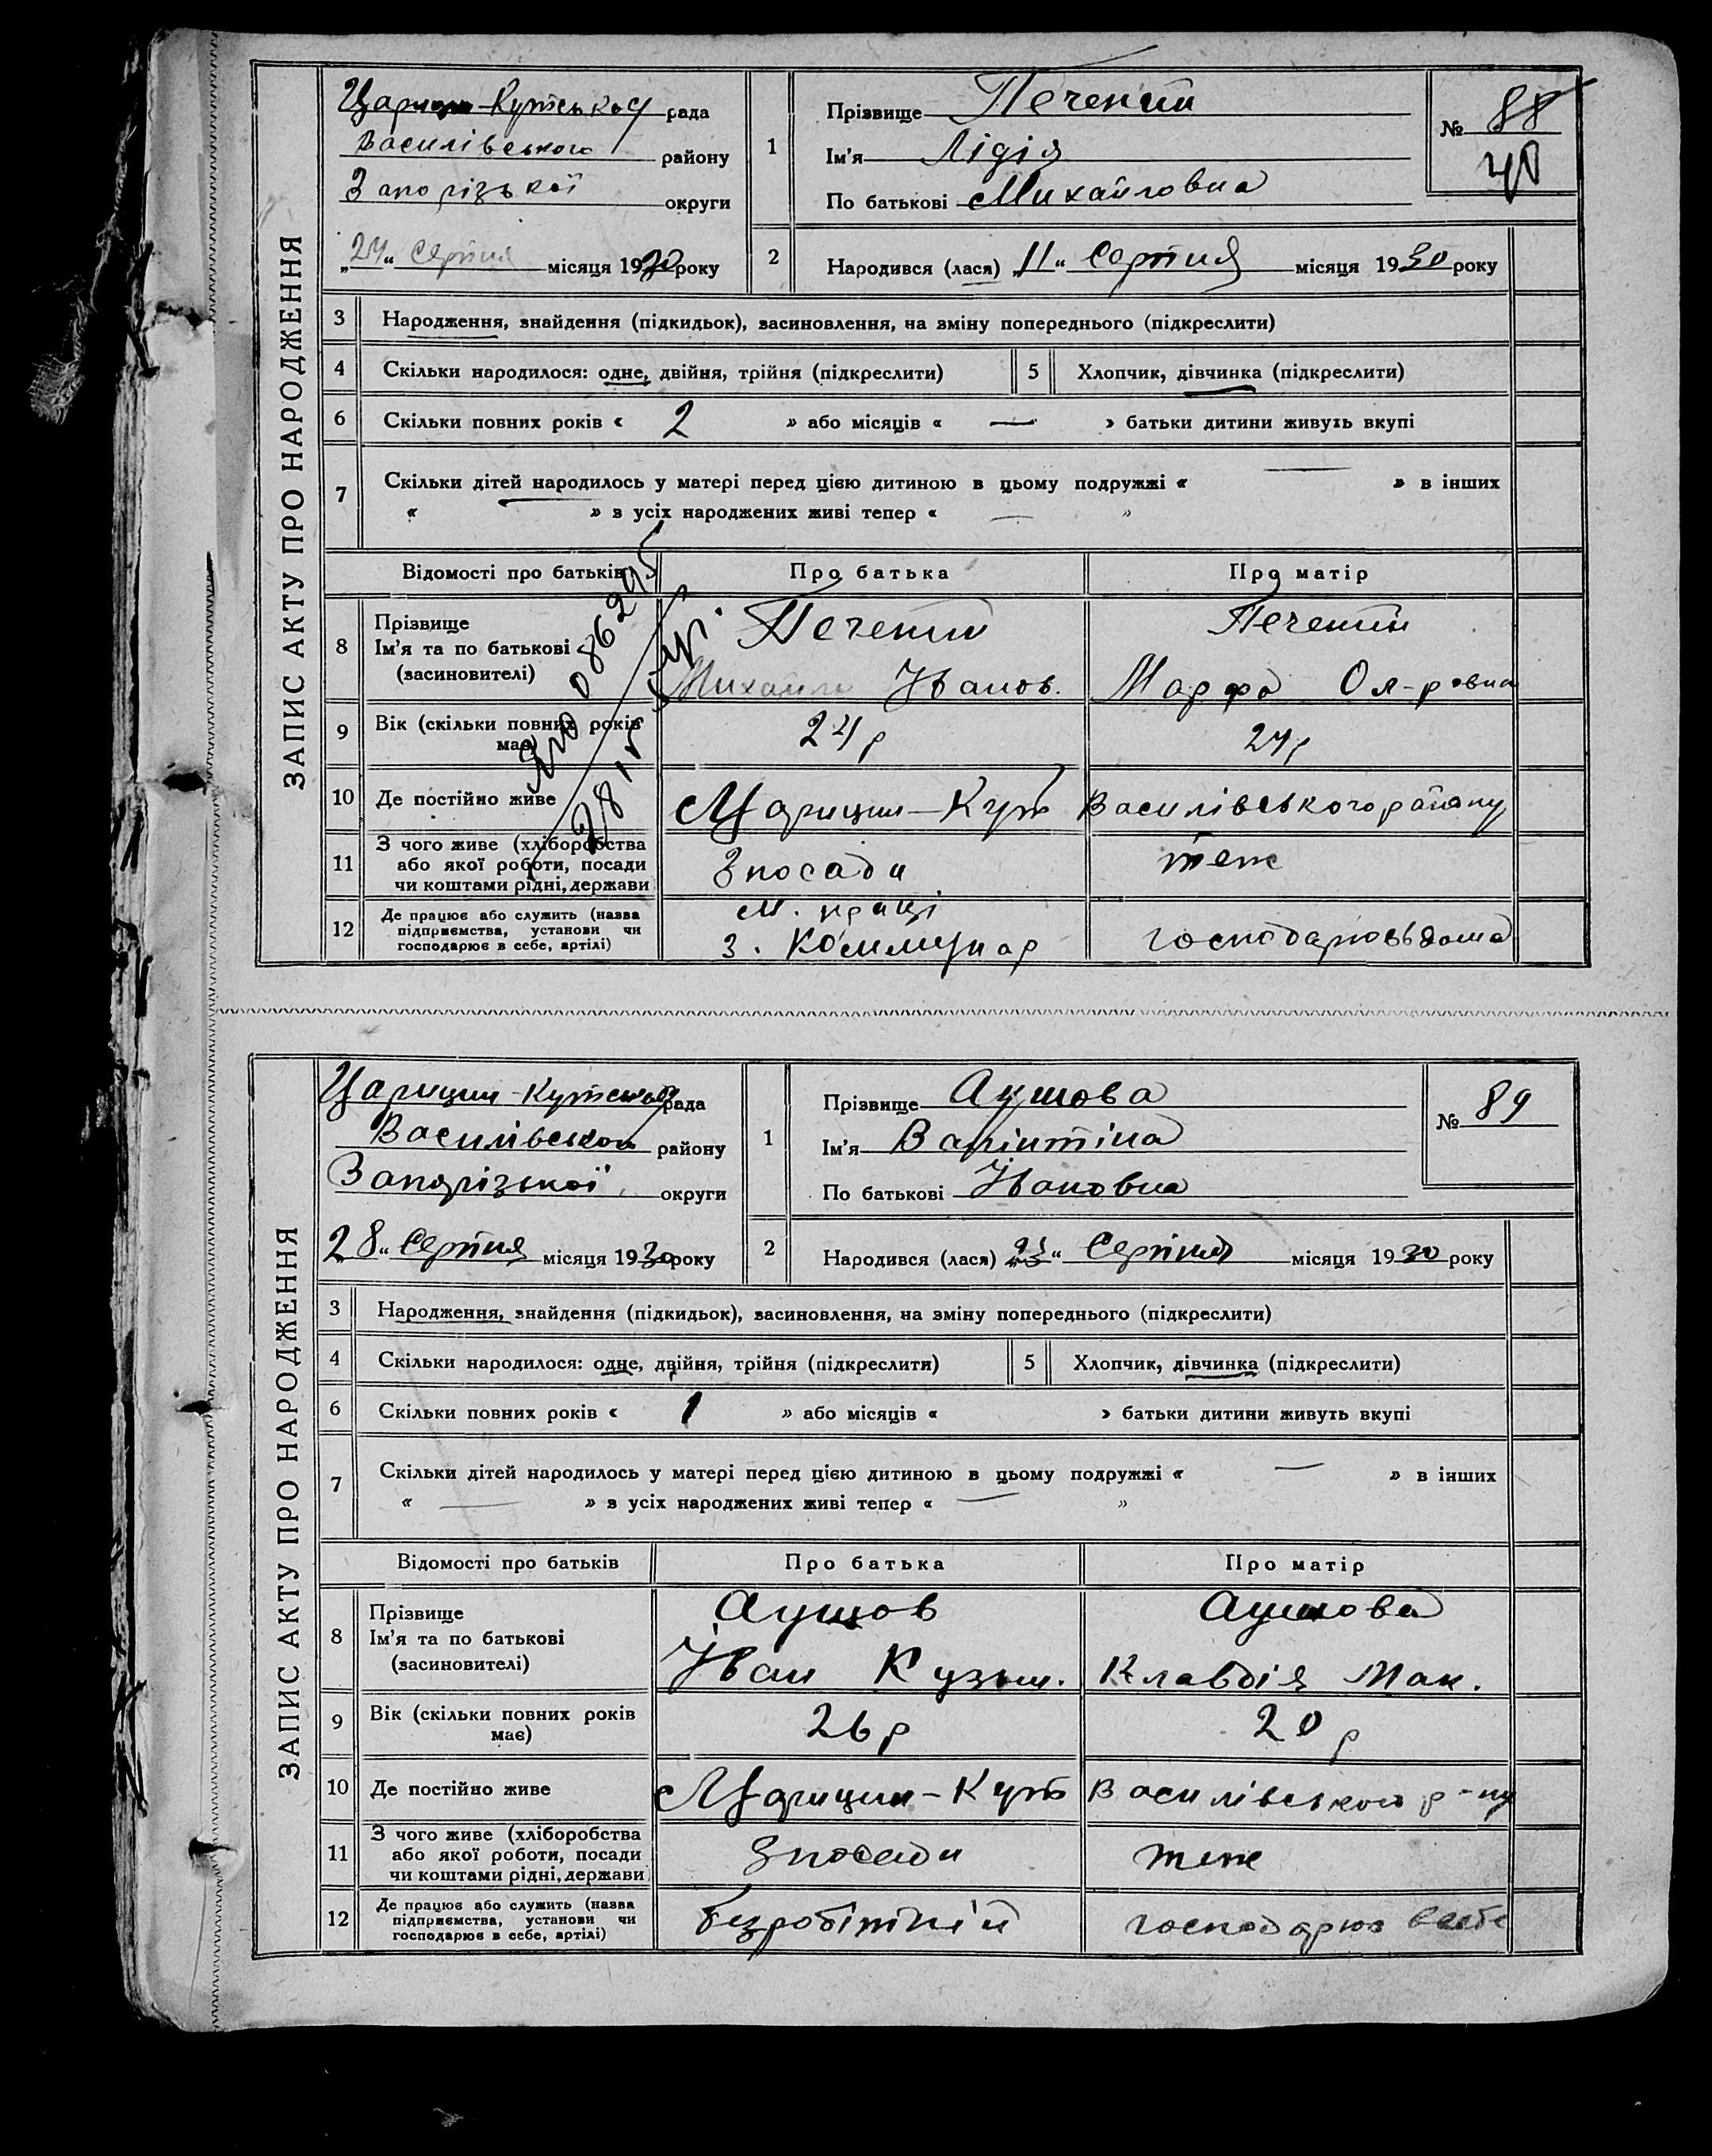 ЗАПИС АКТУ ПРО НАРОДЖЕННЯ
Царицин-Кутської рада
Василівського району
Запорізької округи
„24“ Серпня місяця 1930 року
1
Прізвище Печений
Ім'я Лідія
По батькові Михайловна
№ 88
2
Народився (лася) „11“ Серпня місяця 1930 року
3 Народження, знайдення (підкидьок), засиновлення, на зміну попереднього (підкреслити)
4 Скільки народилося: одне, двійня, трійня (підкреслити) 5 Хлопчик, дівчинка (підкреслити)
6 Скільки повних років « 2 » або місяців « — » батьки дитини живуть вкупі
7 Скільки дітей народилось у матері перед цією дитиною в цьому подружжі « — » в інших
« — » в усіх народжених живі тепер « — »
Відомості про батьків Про батька Про матір
8 Прізвище Ім'я та по батькові (засновителі)
Печений Печений
Михайло Іванов. Марфа
9 Вік (скільки повних років має) 24 р 24 р
10 Де постійно живе Царицин-Кут Василівського району
11 З чого живе (хліборобства або якої роботи, посади чи коштами рідні, держави З посади теж
12 Де працює або служить (назва підприємства, установи чи господарює в себе, артілі)
з. Коммунар господарює вдома
ЗАПИС АКТУ ПРО НАРОДЖЕННЯ
Царицин-Кутської рада
Василівського району
Запорізької округи
28“ Серпня місяця 1930 року
1
Прізвище Аушова
Ім'я Валінтіна
По батькові Івановна
№ 89
2
Народився (лася) „23“ Серпня місяця 1930 року
3 Народження, знайдення (підкидьок), засиновлення, на зміну попереднього (підкреслити)
4 Скільки народилося: одне, двійня, трійня (підкреслити) 5 Хлопчик, дівчинка (підкреслити)
6 Скільки повних років « 1 » або місяців « » батьки дитини живуть вкупі
7 Скільки дітей народилось у матері перед цією дитиною в цьому подружжі « — » в інших
« — » в усіх народжених живі тепер « — »
Відомості про батьків Про батька Про матір
8 Прізвище Ім'я та по батькові (засиновителі)
Аушов Аушова
Іван Кузьм. Клавдія Мак.
9 Вік (скільки повних років має) 26 р 20 р
10 Де постійно живе Царицин-Кут Василівського р-ну
11 З чого живе (хліборобства або якої роботи, посади чи коштами рідні, держави З посади теж
12 Де працює або служить (назва підприємства, установи чи господарює в себе, артілі)
безробітній господарює в себе